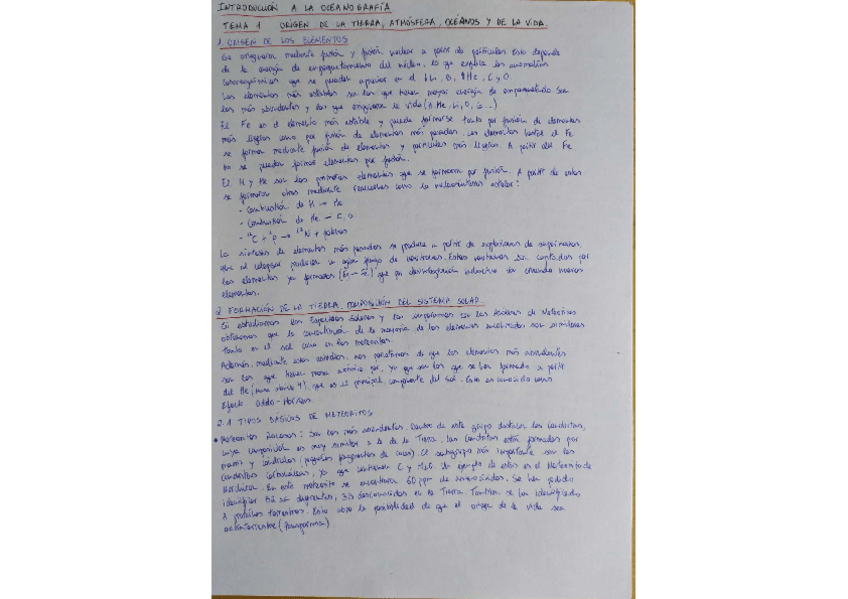 INTRODUCCIÓN A LA OCEANOGRAFÍA
TEMA 1 ORIGEN DE LA TIERRA, ATMÓSFERA, OCÉANOS Y DE LA VIDA.
1 ORIGEN DE LOS ELEMENTOS
Se originaron mediante fusión y fisión nuclear a partir de partículas. Esto depende
de la energía de empaquetamiento del núcleo, lo que explica las anomalías
que se pueden apreciar en el Li, B, He, C y O
Los elementos más estables son los que tienen mayor energía de empaquetado. Son
los más abundantes y los que originaron la vida
El Fe es el elemento más estable y puede formarse tanto por fusión de elementos
más ligeros como por fisión de elementos más pesados. Los elementos hasta el Fe
se forman mediante fusión de elementos y partículas más ligeros. A partir del Fe
no se pueden formar elementos por fusión.
El H y He son los primeros elementos que se formaron por fusión. A partir de estos
se formaron otros mediante reacciones como la nucleosíntesis estelar:
- Combustión de H → He
- Combustión de He → C, O
- C + p → N + fotones
La síntesis de elementos más pesados se produce a partir de explosiones de supernovas,
que al colapsar producen un de neutrones. Estos neutrones son captados por
los elementos ya formados que por desintegración radiactiva van creando nuevos
elementos.
2 FORMACIÓN DE LA TIERRA. COMPOSICIÓN DEL SISTEMA SOLAR
Si estudiamos los Espectros Solares y los comparamos con los de Meteoritos
obtenemos que la concentración de la mayoría de los elementos son similares
tanto en el sol como en los meteoritos.
Además, mediante estos estudios, nos percatamos de que los elementos más abundantes
son los que tienen masa atómica par, ya que son los que se han formado a partir
del He (masa atómica 4), que es el principal componente del Sol. Esto es conocido como
Efecto Oddo-Harkins
2.1 TIPOS BÁSICOS DE METEORITOS
• Meteoritos Rocosos: Son los más abundantes. Dentro de este grupo destacan las Condritas,
cuya composición es muy similar a la de la Tierra. Las Condritas están formadas por
y cóndrulos (pequeños fragmentos de). El subgrupo más importante son las
Condritas Carbonáceas, ya que contienen C y H₂O. Un ejemplo de estas es el Meteorito de
Murchison. En este meteorito se encontraron 60 ppm de aminoácidos. Se han podido
identificar diferentes, desconocidos en la Tierra. También se han identificado
8 terrestres. Esto abre la posibilidad de que el origen de la vida sea
extraterrestre (Panspermia)